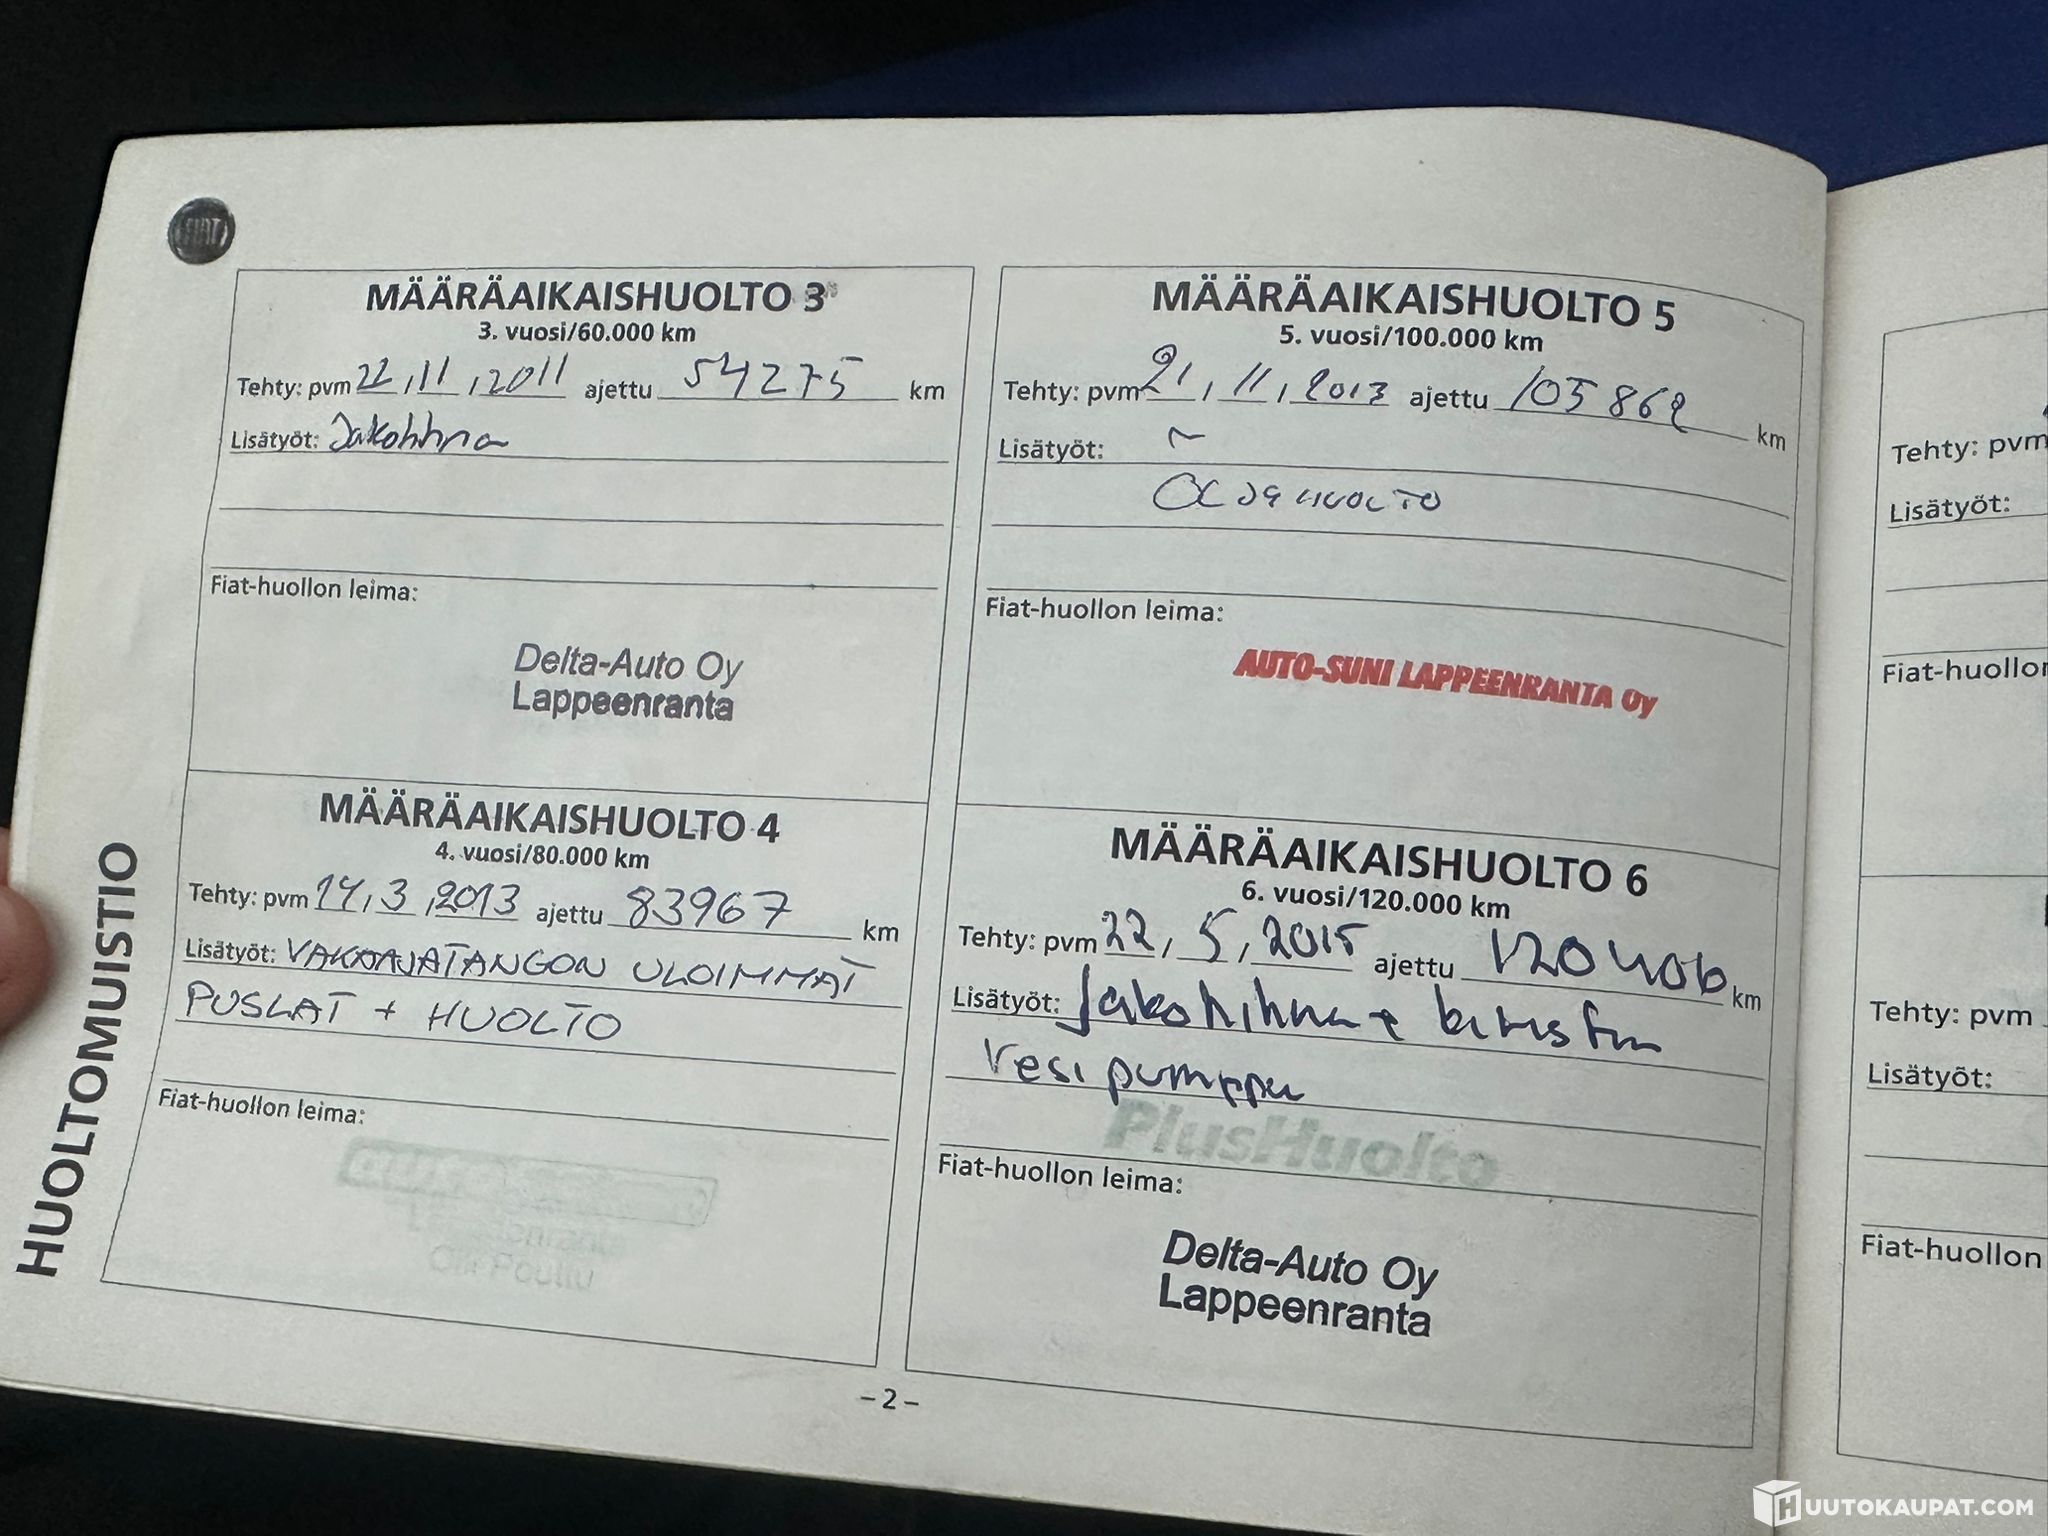 FIAT
MÄÄRÄAIKAISHUOLTO 3
3. vuosi/60.000 km
Tehty: pvm 22 . 11 . 2011 ajettu 54275 km
Lisätyöt: Jakohihna
Fiat-huollon leima:
Delta-Auto Oy
Lappeenranta
MÄÄRÄAIKAISHUOLTO 4
4. vuosi/80.000 km
Tehty: pvm 14 . 3 . 2013 ajettu 83967 km
Lisätyöt: VAKAAJATANGON ULOIMMAT
PUSLAT + HUOLTO
Fiat-huollon leima:
Lappeenranta
MÄÄRÄAIKAISHUOLTO 5
5. vuosi/100.000 km
Tehty: pvm 21 . 11 . 2013 ajettu 105862 km
Lisätyöt:
Fiat-huollon leima:
AUTO-SUNI LAPPEENRANTA Oy
MÄÄRÄAIKAISHUOLTO 6
6. vuosi/120.000 km
Tehty: pvm 22 . 5 . 2015 ajettu 120406 km
Lisätyöt: Jakohihna + kiristin
Vesipumppu
PlusHuolto
Fiat-huollon leima:
Delta-Auto Oy
Lappeenranta
HUOLTOMUISTIO
– 2 –
Tehty: pvm
Lisätyöt:
Fiat-huollon
Tehty: pvm
Lisätyöt:
Fiat-huollon
HUUTOKAUPAT.COM